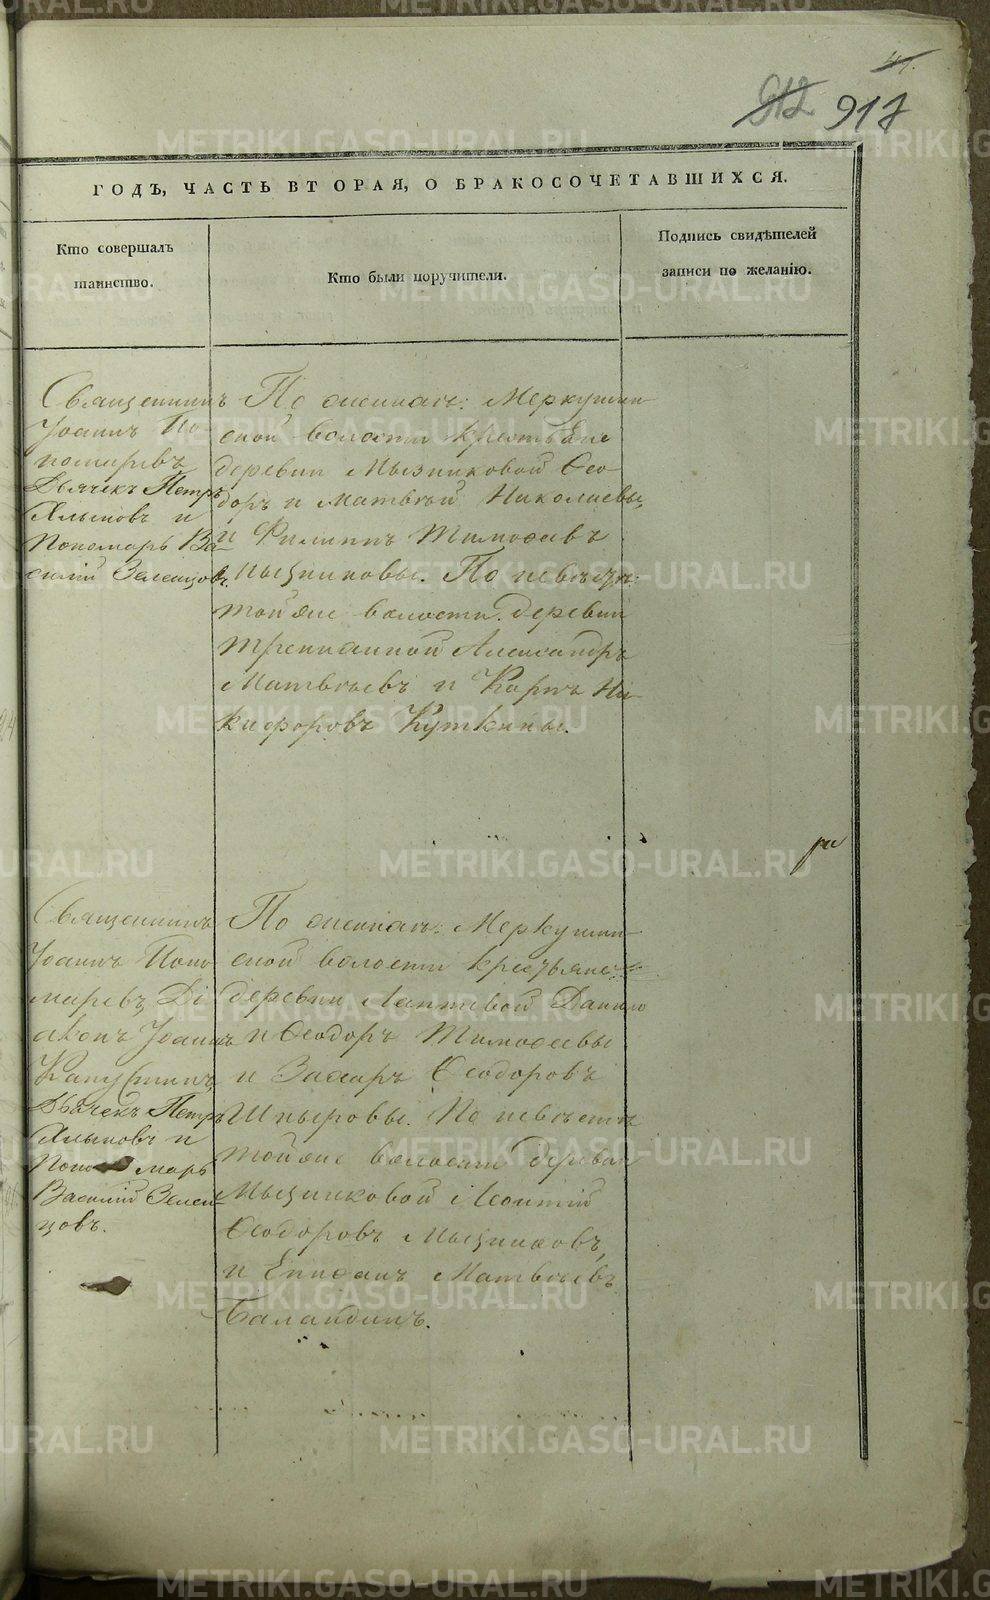 912 917
ГОДЪ, ЧАСТЬ ВТОРАЯ, О БРАКОСОЧЕТАВШИХСЯ.
Кто совершалъ
таинство.
Кто были поручители.
Подпись свидѣтелей
записи по желанію.
Священникъ
Іоаннъ По-
номаревъ
Дьячекъ Петръ
Хлыновъ и
Пономарь Ва-
силій Зеленцовъ.
По женихѣ: Меркушин-
ской волости крестьяне
деревни Мызниковой Ѳео-
доръ и Матвѣй Николаевы,
и Филиппъ Тимоѳеевъ
Мызниковы. По невѣстѣ:
той же волости деревни
Трепианиной Александръ
Матвѣевъ и Карпъ Ни-
кифоровъ Куткины.
Священникъ
Іоаннъ Поно-
маревъ, Ді-
аконъ Іоаннъ
Капустинъ,
Дьячекъ Петръ
Хлыновъ и
Пономарь
Василій Зелен-
цовъ.
По женихѣ: Меркушин-
ской волости крестьяне:
деревни Лаптевой Данило
и Ѳеодоръ Тимоѳеевы
и Захаръ Ѳеодоровъ
По невѣстѣ
той же волости деревни
Мызниковой Леонтій
Ѳеодоровъ Мызниковъ,
и Епифанъ Матвѣевъ
Баландинъ.
METRIKI.GASO-URAL.RU